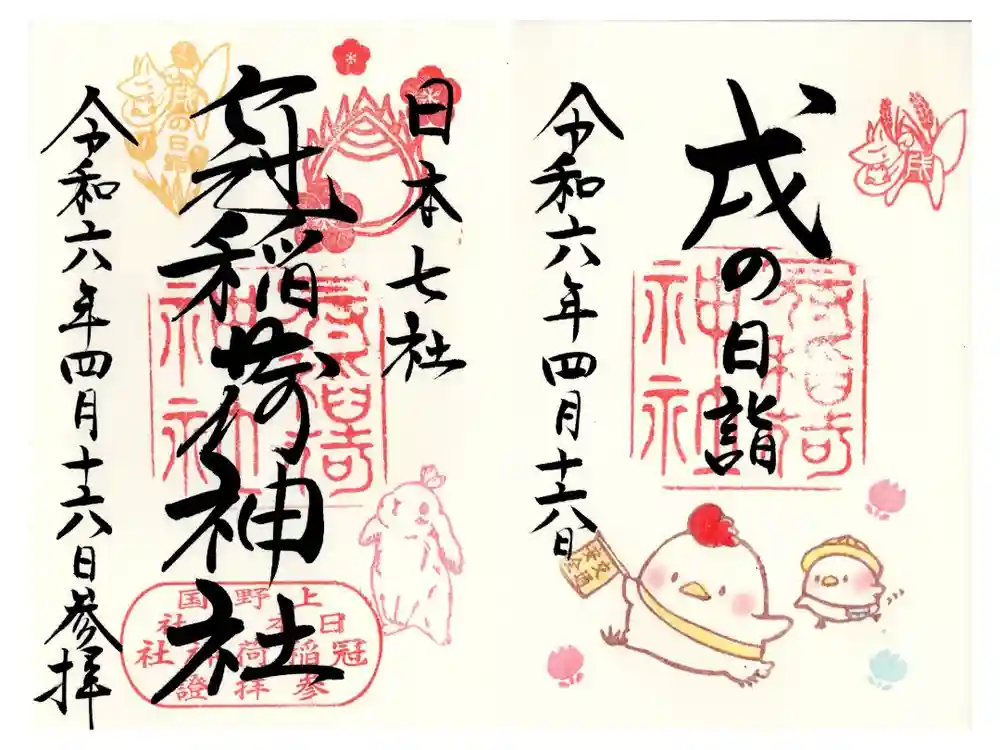 戌
戌の日詣
冠稲荷神社
令和六年四月十六日
交通安全
日本七社
冠稲荷神社
冠稲荷神社
戌の日詣
上野国
日本七社
冠稲荷神社
参拝證
令和六年四月十六日参拝